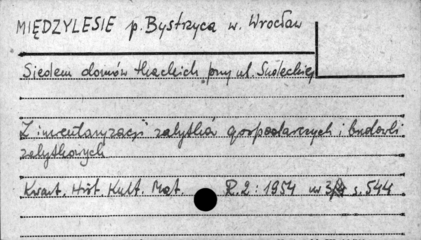 MIĘDZYLESIE p. Bystrzyca w. Wrocław
Siedem domów tkackich przy ul. Sudeckiej
Z inwentaryzacji zabytków gospodarczych i budowli
zabytkowych
Kwart. Hist. Kult. Mat. R. 2 : 1954 nr 3/4 s. 544